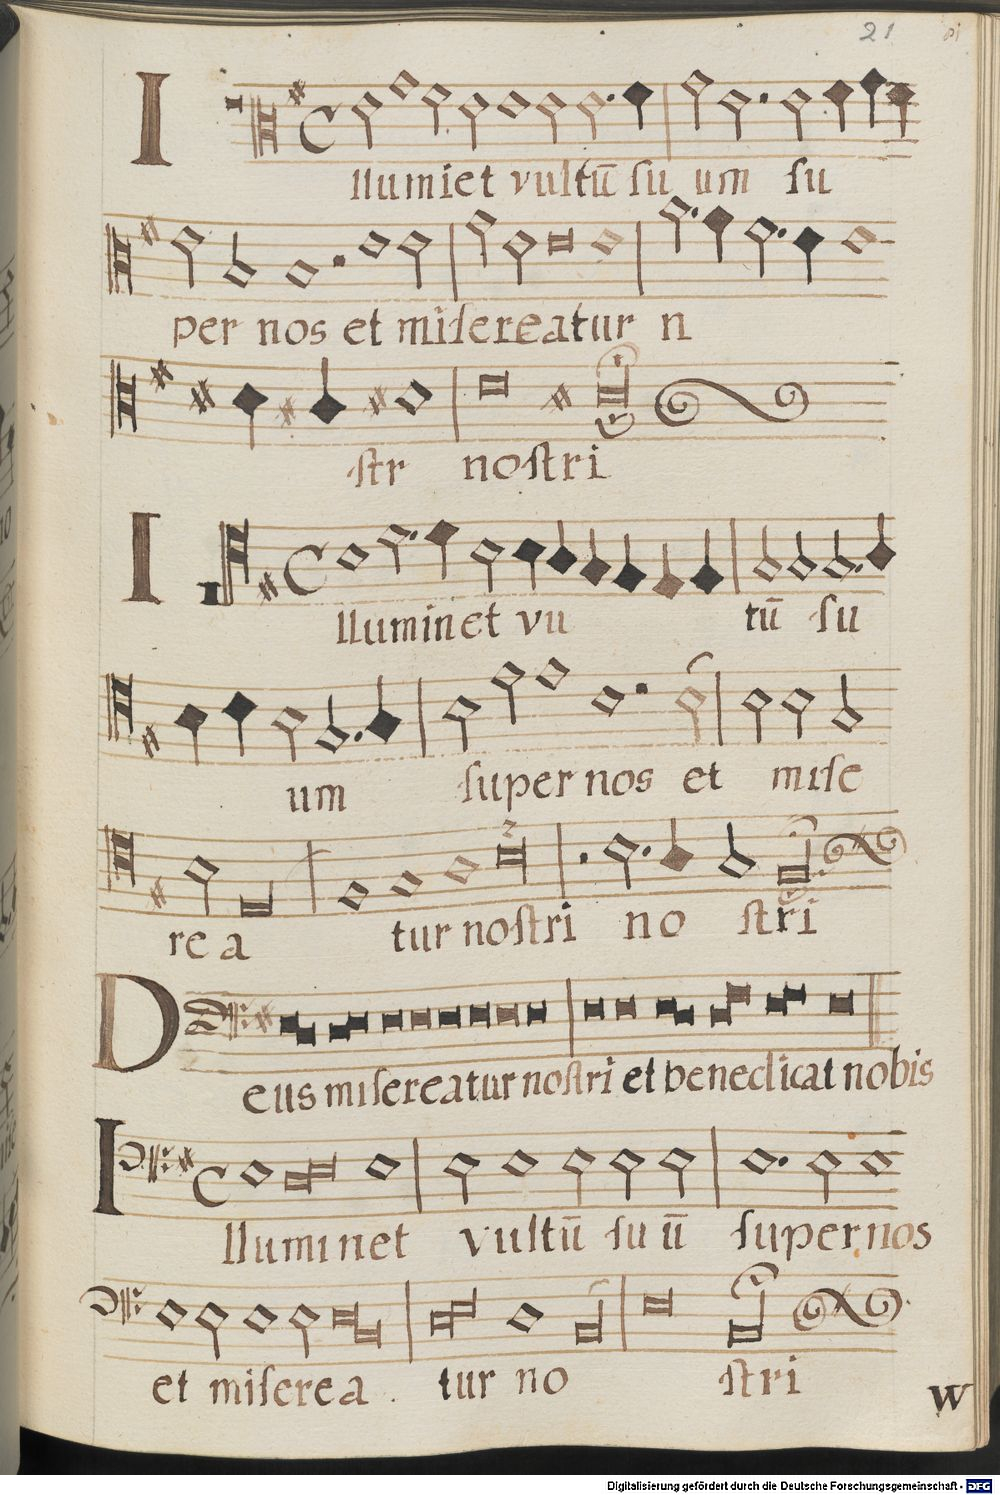 21
I
llumiet vultū ſu um ſu
per nos et miſereatur n
ſtr noſtri
I
lluminet vu tū ſu
um ſuper nos et miſe
re a tur noſtri no ſtri
D
eus miſereatur noſtri et benedicat nobis
I
lluminet vultū ſu ū ſuper nos
et miſerea. tur no ſtri
W
Digitalisierung gefördert durch die Deutsche Forschungsgemeinschaft - DFG